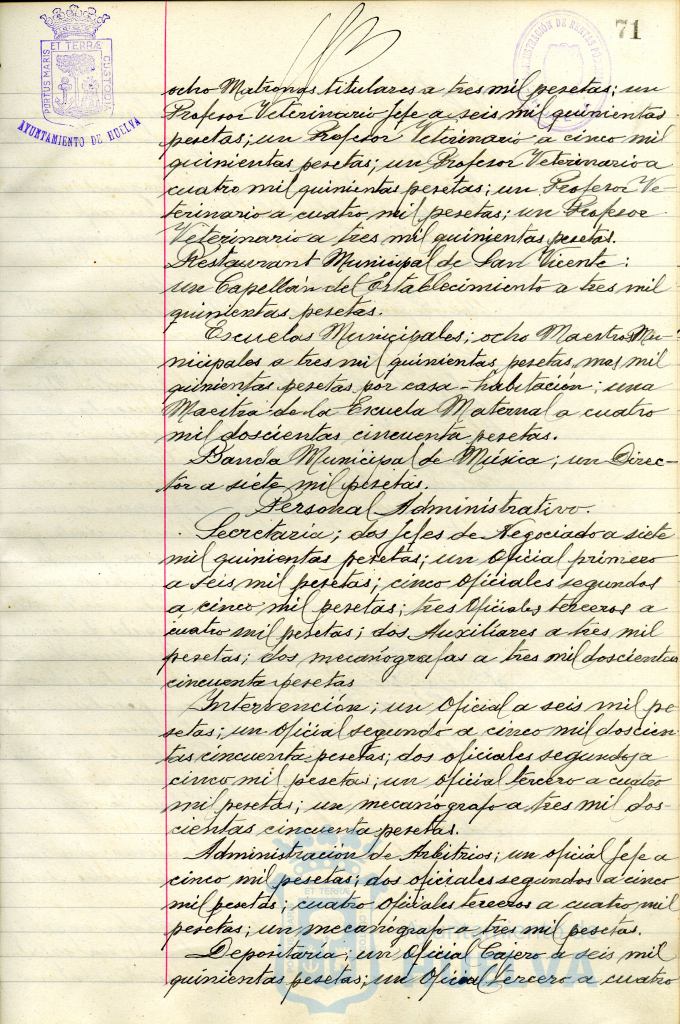 71
PORTUS MARIS
ET TERRÆ
CUSTODIA
AYUNTAMIENTO DE HUELVA
ADMINISTRACIÓN DE RENTAS
ocho Matronas titulares a tres mil pesetas; un
Profesor Veterinario Jefe a seis mil quinientas
pesetas; un Profesor Veterinario a cinco mil
quinientas pesetas; un Profesor Veterinario a
cuatro mil quinientas pesetas; un Profesor Ve-
terinario a cuatro mil pesetas; un Profesor
Veterinario a tres mil quinientas pesetas.
Restaurant Municipal de San Vicente:
un Capellán del Establecimiento a tres mil
quinientas pesetas.
Escuelas Municipales; ocho Maestros Mu-
nicipales a tres mil quinientas pesetas, mas mil
quinientas pesetas por casa-habitación; una
Maestra de la Escuela Maternal a cuatro
mil doscientas cincuenta pesetas.
Banda Municipal de Música; un Direc-
tor a siete mil pesetas.
Personal Administrativo.
Secretaría; dos Jefes de Negociado a siete
mil quinientas pesetas; un Oficial primero
a seis mil pesetas; cinco oficiales segundos
a cinco mil pesetas; tres Oficiales terceros a
cuatro mil pesetas; dos Auxiliares a tres mil
pesetas; dos mecanógrafas a tres mil doscientas
cincuenta pesetas
Intervención; un Oficial a seis mil pe-
setas; un oficial segundo a cinco mil doscien-
tas cincuenta pesetas; dos oficiales segundos a
cinco mil pesetas; un oficial tercero a cuatro
mil pesetas; un mecanógrafo a tres mil dos-
cientas cincuenta pesetas.
Administración de Arbitrios; un oficial Jefe a
cinco mil pesetas; dos oficiales segundos a cinco
mil pesetas; cuatro oficiales terceros a cuatro mil
pesetas; un mecanógrafo a tres mil pesetas.
Depositaría; un Oficial Cajero a seis mil
quinientas pesetas; un Oficial tercero a cuatro
ET TERRÆ
HUELVA